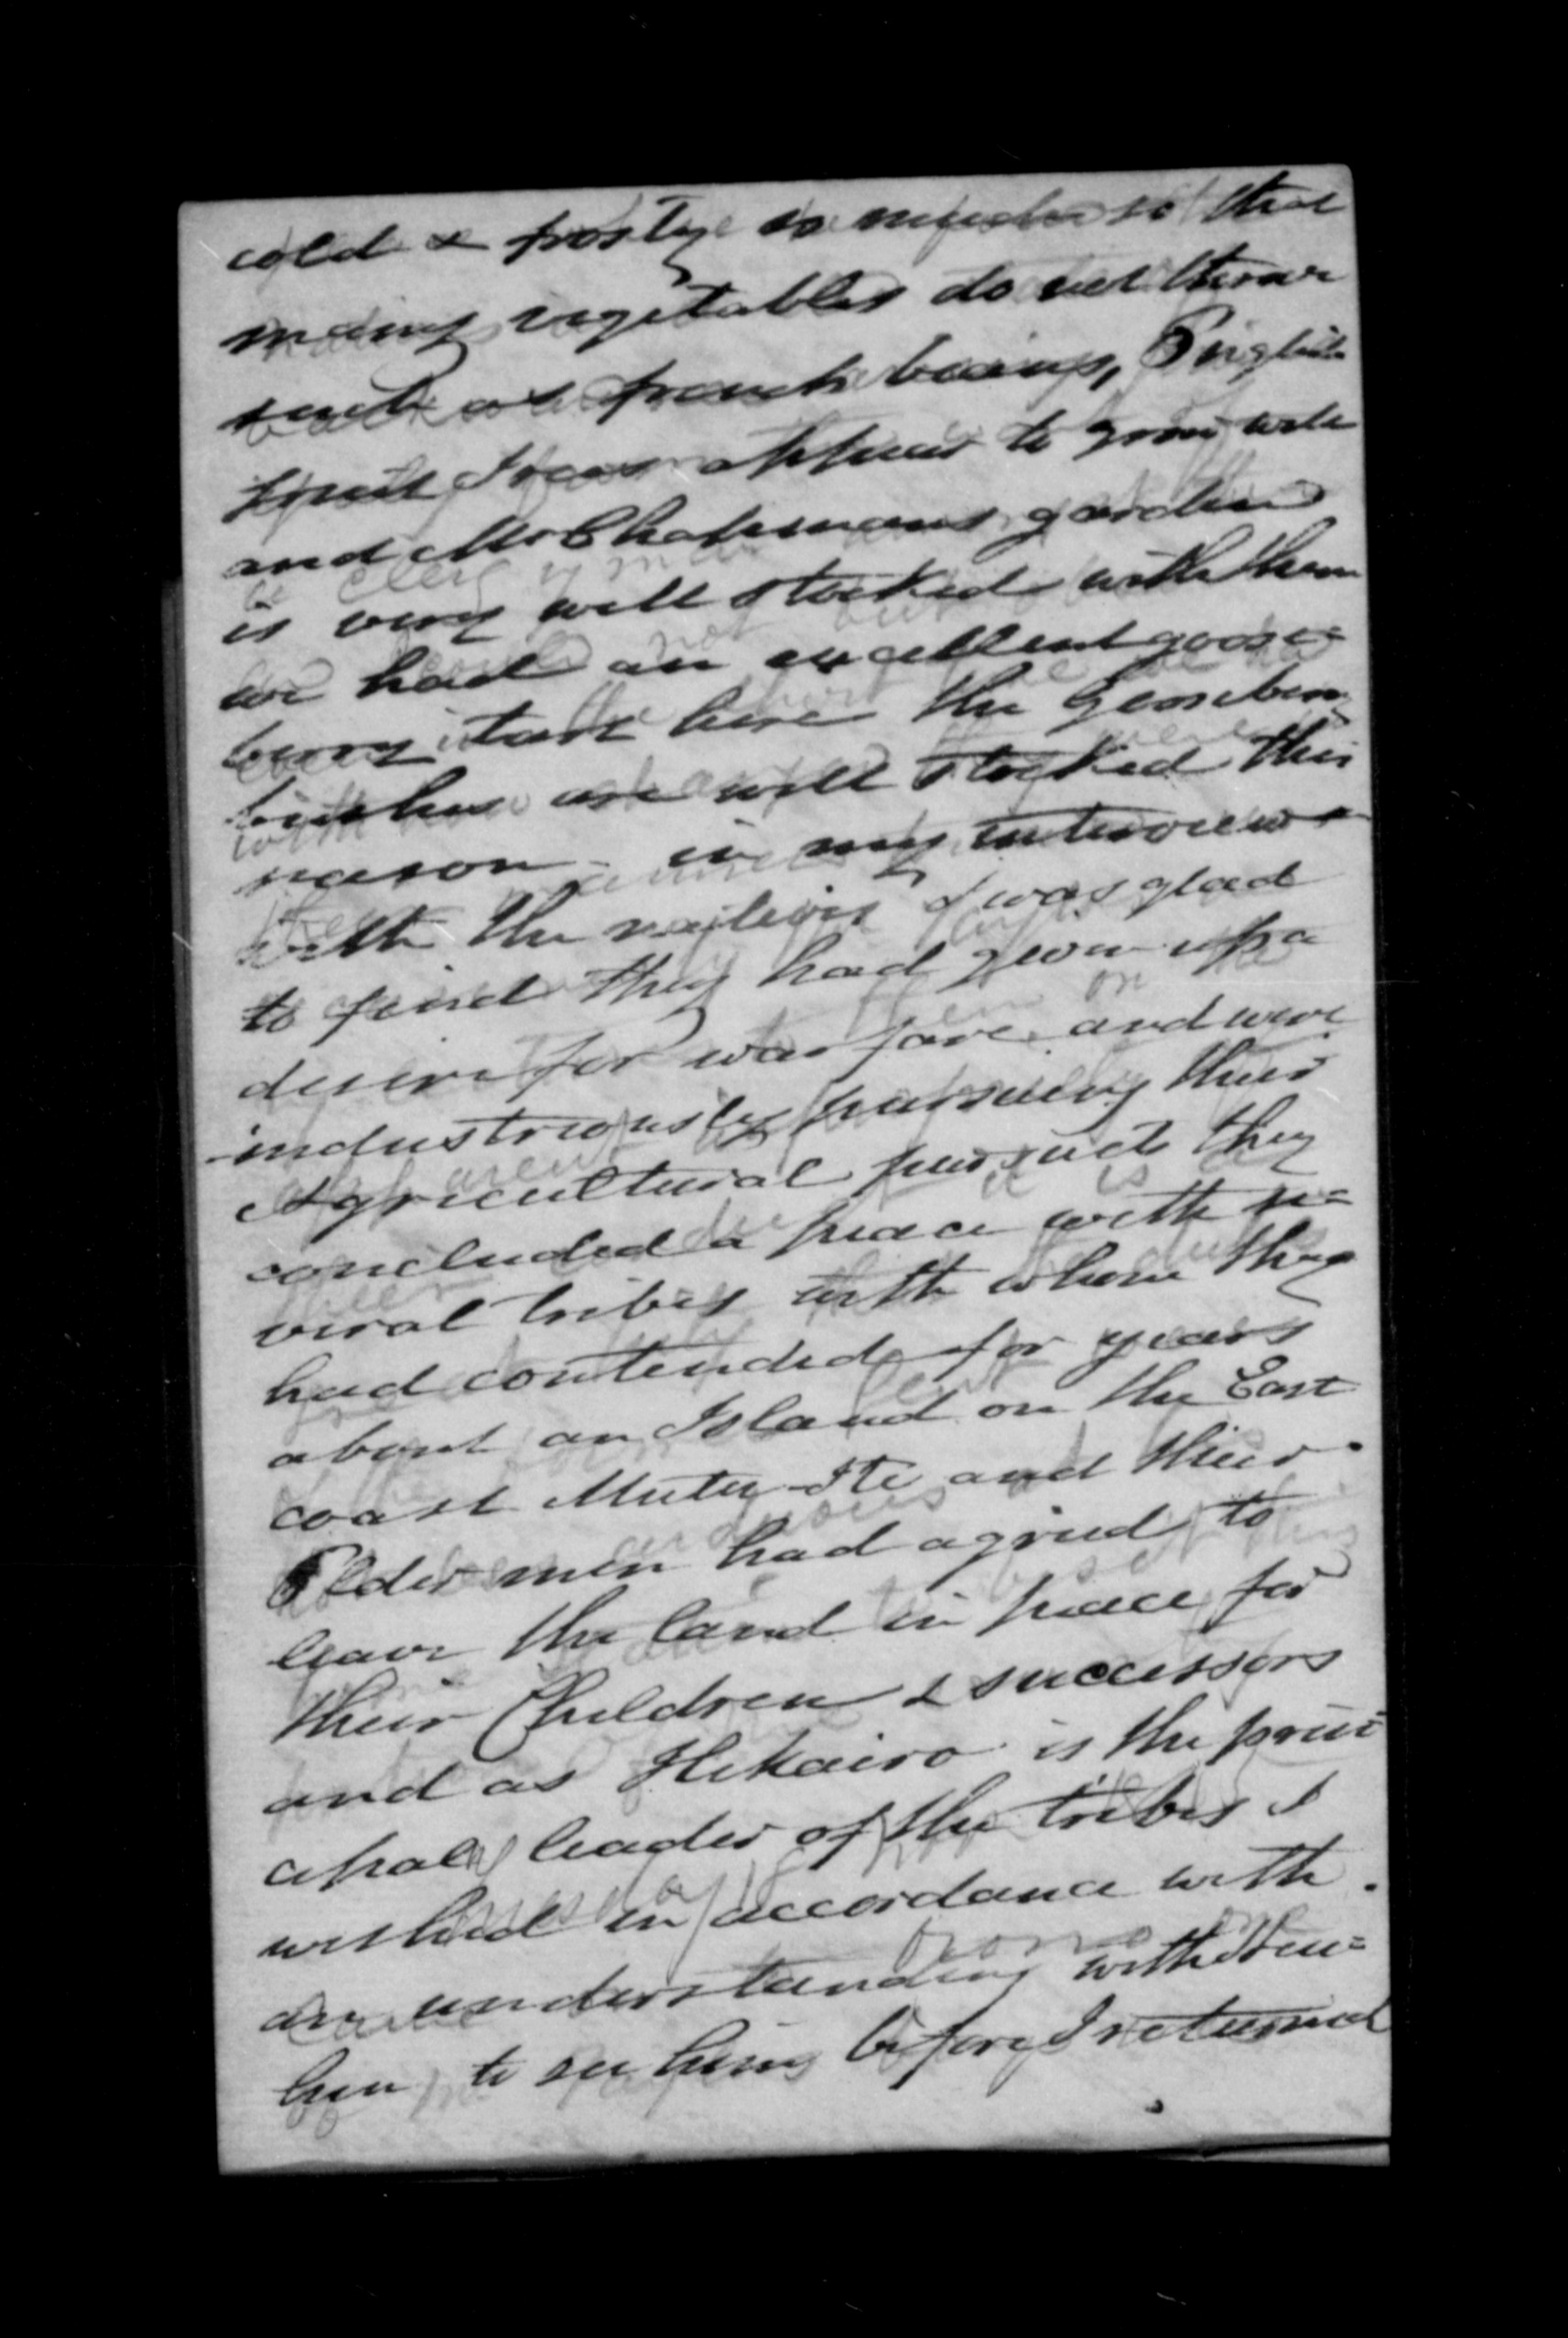 cold & frosty so much so that
many vegetables do not thrive
such as french beans, English
fruit trees appear to grow well
and Mr Chapmans garden
is very well stocked with them
we had an excellent goose=
berry tart here the Gooseberry
bushes are well stocked this
season - in my interviews
with the natives I was glad
to find they had given up a
desire for warfare and were
industriously pursuing their
Agricultural pursuits they
concluded a peace with se=
veral tribes with whom they
had contended for years
about an Island on the East
coast and their
Elder men had agried to
leave the land in peace for
their Children & successors
and as Hikairo is the prin=
cipal leader of the tribes I
wished in accordance with
an understanding with
him to see him before I returned